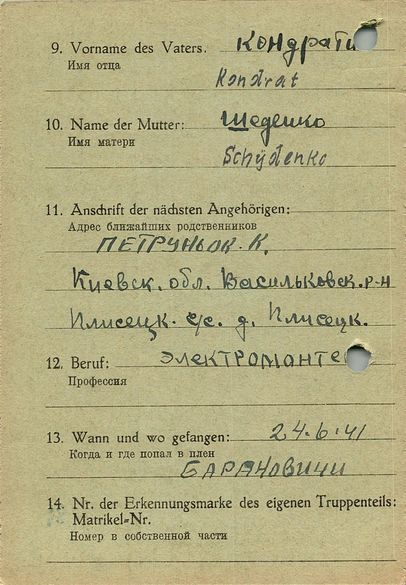 9. Vorname des Vaters. Кондрати
Имя отца
Kondrat
10. Name der Mutter: Шеденко
Имя матери
Schydenko
11. Anschrift der nächsten Angehörigen:
Адрес ближайших родственников
ПЕТРУНЬОК. К.
Киевск. обл. Васильковск. р-н
Плисецк. с/с. д. Плисецк.
12. Beruf: ЭЛЕКТРОМОНТЕ
Профессия
13. Wann und wo gefangen: 24.6.41
Когда и где попал в плен
БАРАНОВИЧИ
14. Nr. der Erkennungsmarke des eigenen Truppenteils:
Matrikel-Nr.
Номер в собственной части